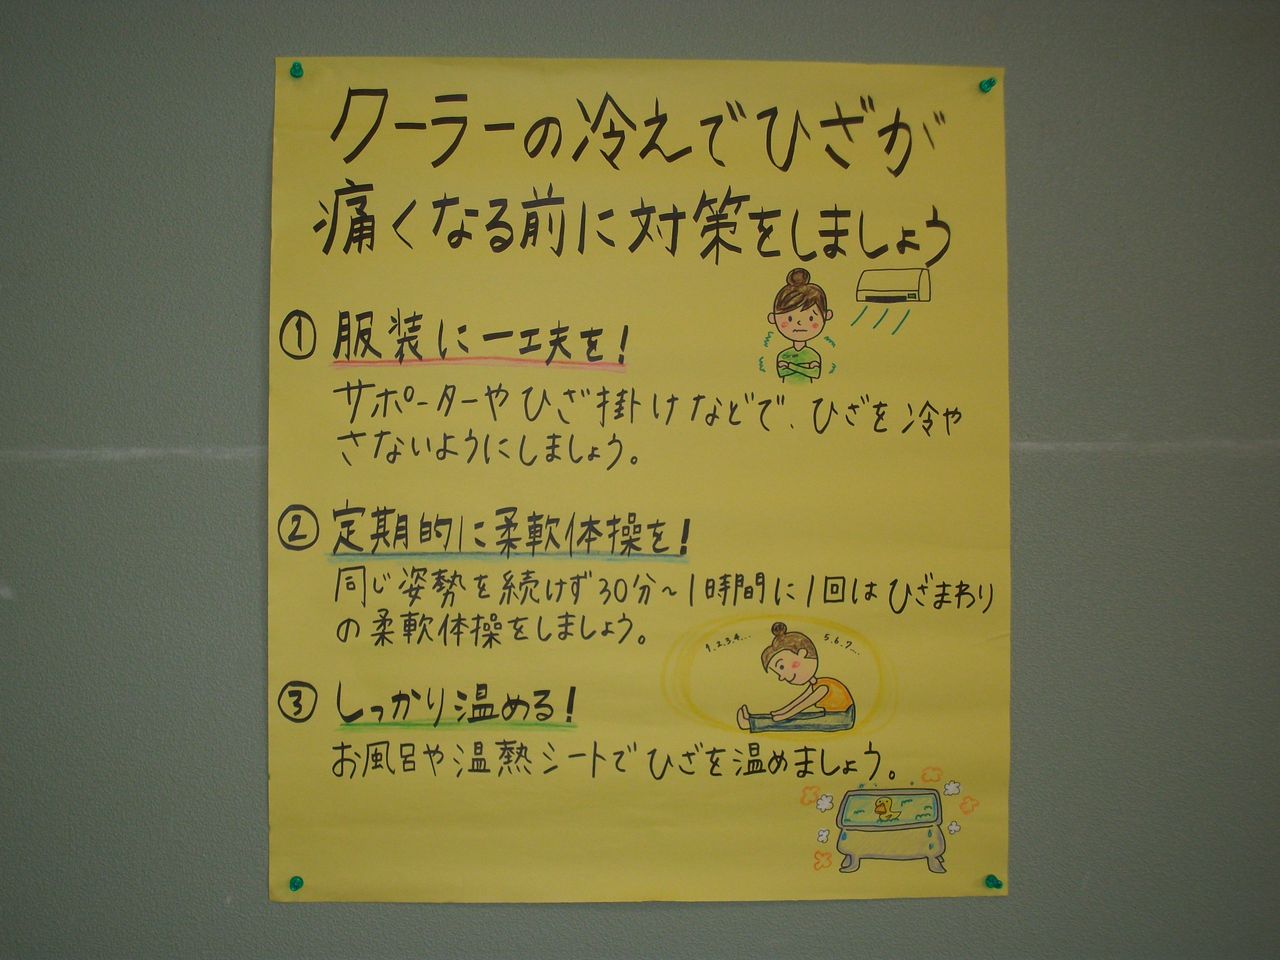 クーラーの冷えでひざが
痛くなる前に対策をしましょう
① 服装に一工夫を!
サポーターやひざ掛けなどで、ひざを冷や
さないようにしましょう。
② 定期的に柔軟体操を!
同じ姿勢を続けず30分～1時間に1回はひざまわり
の柔軟体操をしましょう。
1.2.3.4.... 5.6.7....
③ しっかり温める!
お風呂や温熱シートでひざを温めましょう。